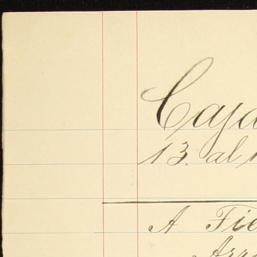 Caja
13. al
A Fie
Arr